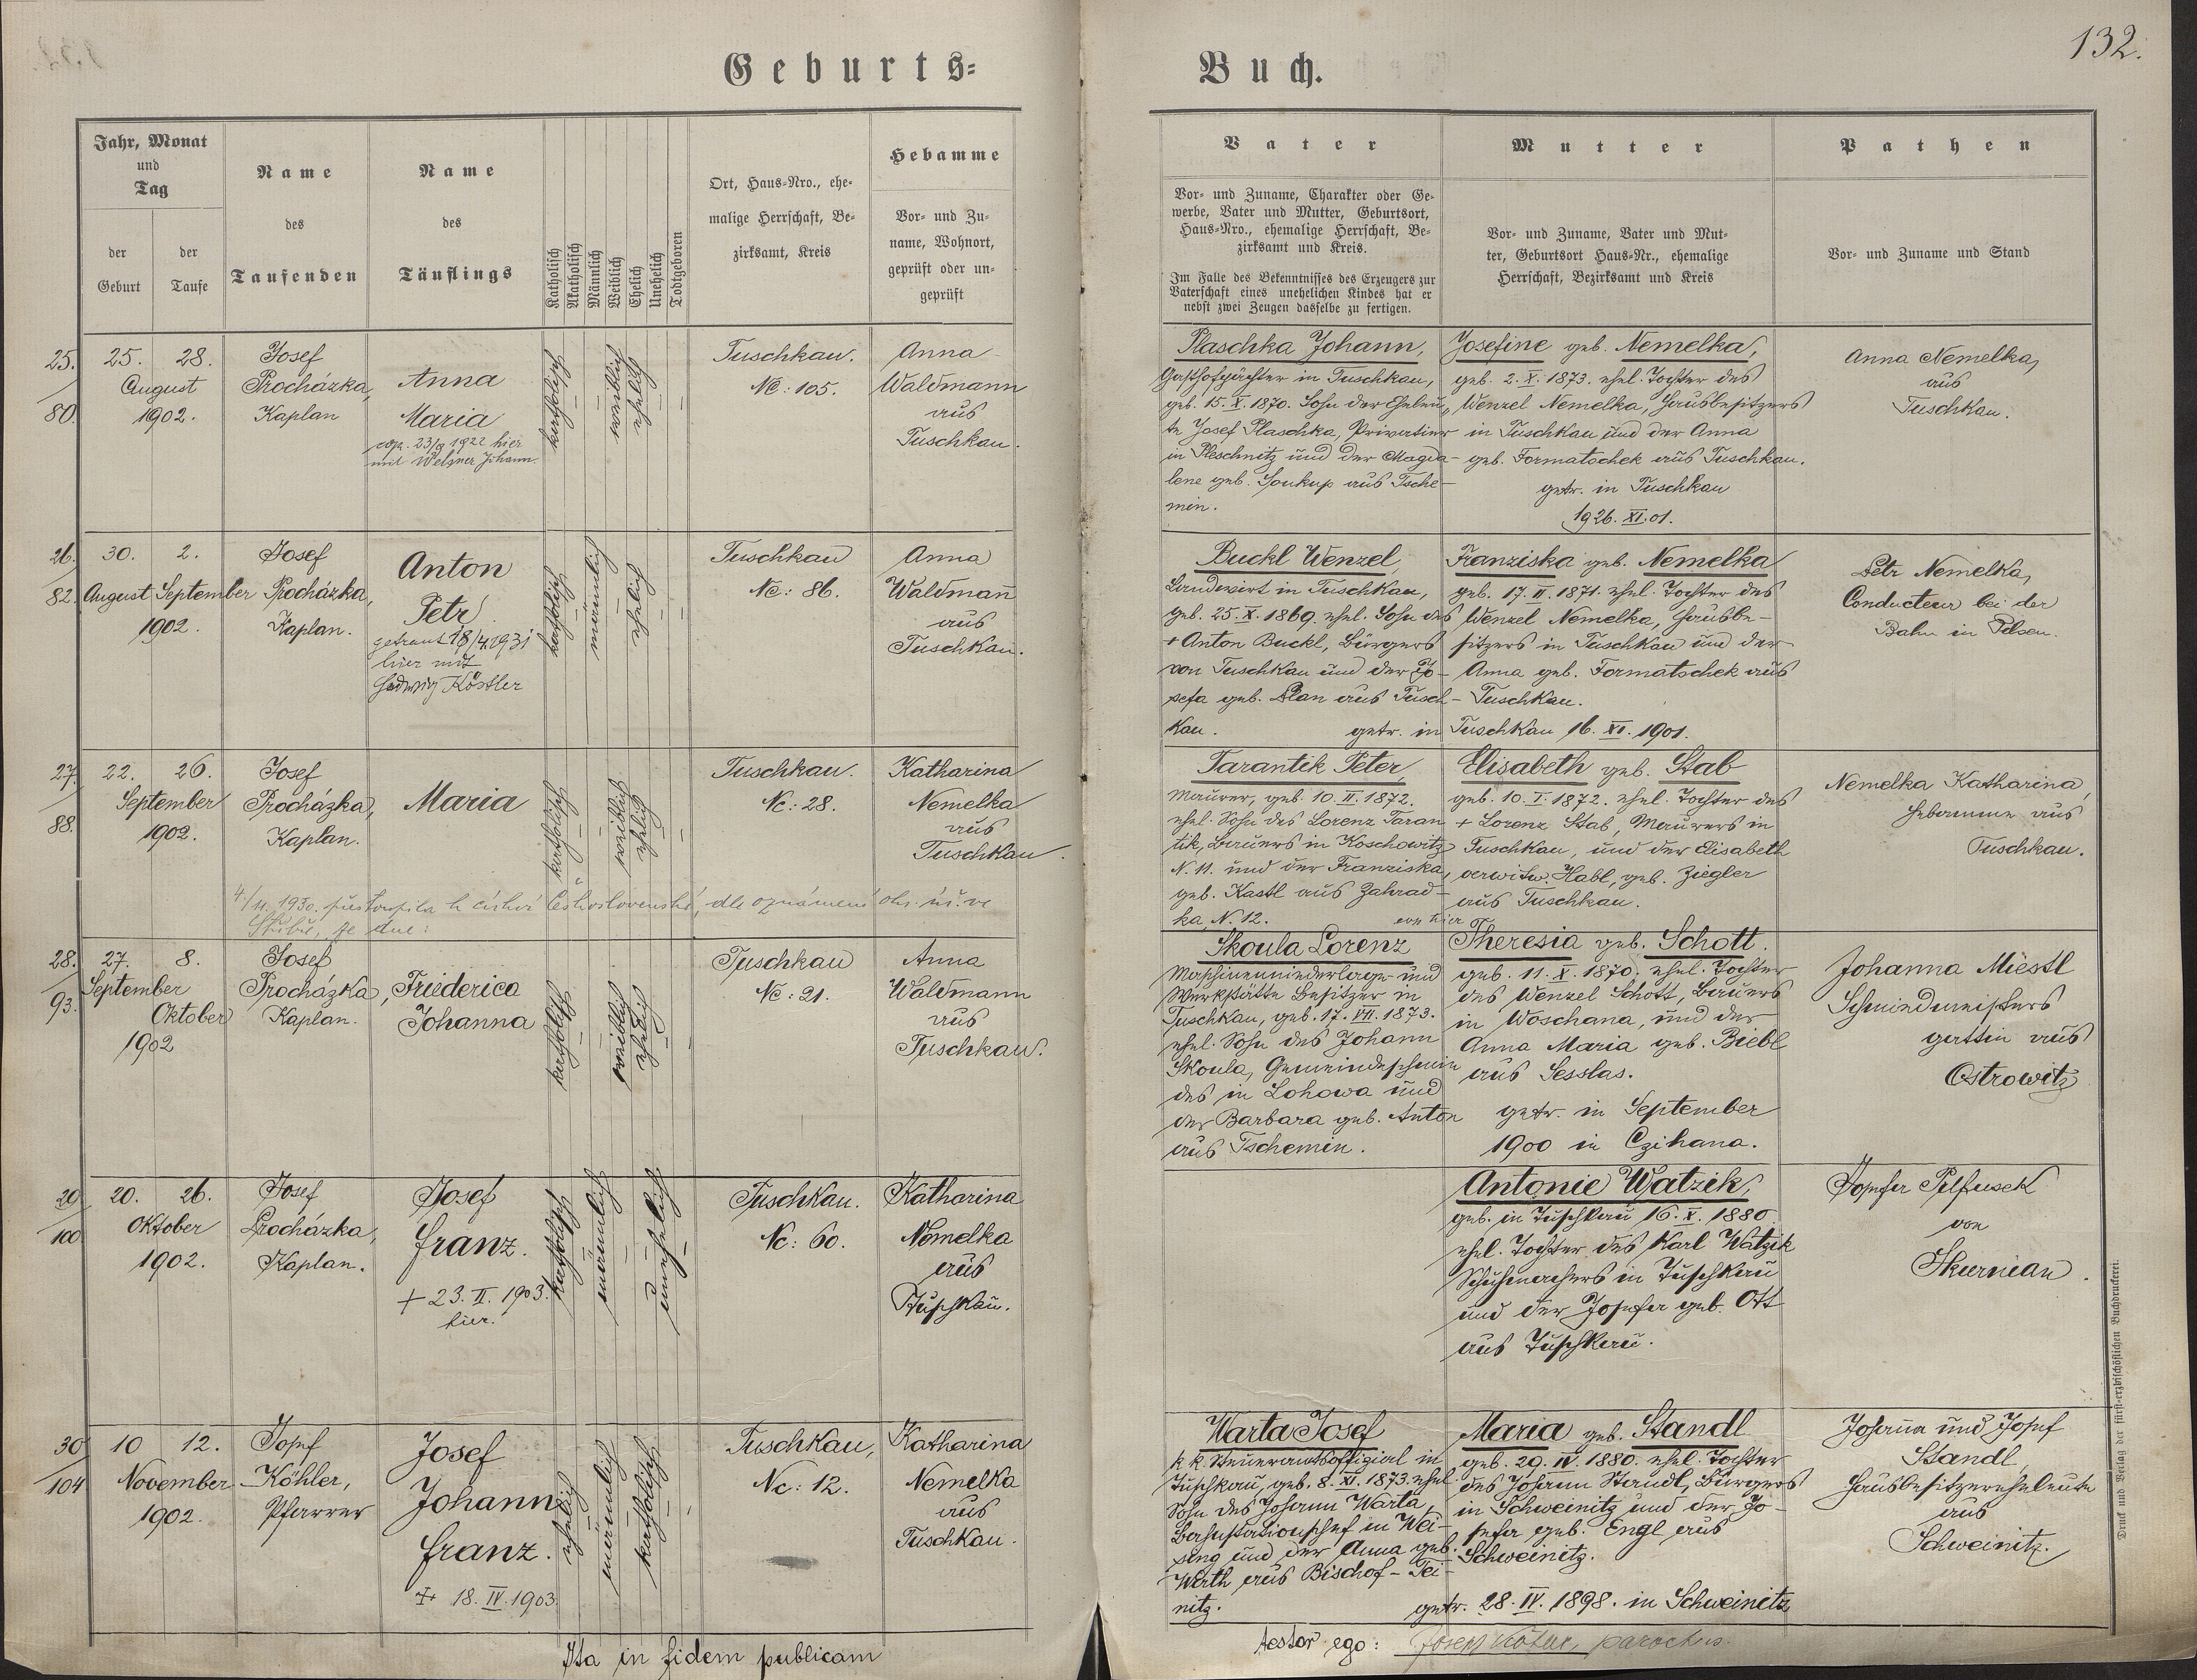 132.
Geburts-
Buch.
Jahr, Monat
und
Tag
der
Geburt
der
Taufe
Name
des
Taufenden
Name
des
Täuflings
Katholisch
Akatholisch
Männlich
Weiblich
Ehelich
Unehelich
Todtgeboren
Ort, Haus-Nro., ehe-
malige Herrschaft, Be-
zirksamt, Kreis
Hebamme
Vor- und Zu-
name, Wohnort,
geprüft oder un-
geprüft
Vater
Vor- und Zuname, Charakter oder Ge-
werbe, Vater und Mutter, Geburtsort,
Haus-Nro., ehemalige Herrschaft, Be-
zirksamt und Kreis.
Im Falle des Bekenntnisses des Erzeugers zur
Vaterschaft eines unehelichen Kindes hat er
nebst zwei Zeugen dasselbe zu fertigen.
Mutter
Vor- und Zuname, Vater und Mut-
ter, Geburtsort Haus-Nr., ehemalige
Herrschaft, Bezirksamt und Kreis
Pathen
Vor- und Zuname und Stand
25.
80.
25. 28.
August
1902.
Josef
Procházka,
Kaplan
Anna
Maria
cop. 23/9 1922 hier
mit Welsner Johann.
katholisch
weiblich
ehelich
Tuschkau.
Nc: 105.
Anna
Waldmann
aus
Tuschkau.
Plaschka Johann,
Gasthofpächter in Tuschkau,
geb. 15. X. 1870. Sohn der Eheleu-
te Josef Plaschka, Privatier
in Pleschnitz und der Magda-
lene geb. Soukup aus Tsche-
min.
Josefine geb. Nemelka,
geb. 2. X. 1873. ehel. Tochter des
Wenzel Nemelka, Hausbesitzers
in Tuschkau und der Anna
geb. Formatschek aus Tuschkau.
getr. in Tuschkau
1926. XI. 01.
Anna Nemelka,
aus
Tuschkau.
26.
82.
30. 2.
August September
1902.
Josef
Procházka,
Kaplan.
Anton
Petr
getraut 18/4 1931
hier mit
Hedwig Köstler
katholisch
männlich
ehelich
Tuschkau
Nc: 86.
Anna
Waldmann
aus
Tuschkau.
Buckl Wenzel,
Landwirt in Tuschkau,
geb. 25. X. 1869. ehel. Sohn des
+ Anton Buckl, Bürgers
von Tuschkau und der Jo-
sefa geb. Plan aus Tusch-
kau.
Franziska geb. Nemelka
geb. 17. II. 1871. ehel. Tochter des
Wenzel Nemelka, Hausbe-
sitzers in Tuschkau und der
Anna geb. Formatschek aus
Tuschkau.
getr. in Tuschkau 16. XI. 1901.
Petr Nemelka,
Conducteur bei der
Bahn in Pilsen.
27.
88.
22. 26.
September
1902.
Josef
Procházka,
Kaplan.
Maria
katholisch
weiblich
ehelich
Tuschkau.
Nc: 28.
Katharina
Nemelka
aus
Tuschkau.
4/11. 1930. přestoupila k církvi československé, dle oznámení okr. úř. ve
Stříbře, ze dne:
Tarantik Peter,
Maurer, geb. 10. II. 1872.
ehel. Sohn des Lorenz Taran
tik, Bauers in Koschowitz
N. 11. und der Franziska,
geb. Kastl aus Zahrad-
ka, N. 12.
Elisabeth geb. Stab
geb. 10. I. 1872. ehel. Tochter des
+ Lorenz Stab, Maurers in
Tuschkau, und der Elisabeth
verwitw. Habl, geb. Ziegler
aus Tuschkau.
von hier
Nemelka Katharina,
Hebamme aus
Tuschkau.
28.
93.
27. 8.
September
Oktober
1902
Josef
Procházka,
Kaplan.
Friederica
Johanna
katholisch
weiblich
ehelich
Tuschkau
Nc: 21.
Anna
Waldmann
aus
Tuschkau.
Skoula Lorenz
Maschinenniederlage- und
Werkstätte Besitzer in
Tuschkau, geb. 17. VII. 1873.
ehel. Sohn des Johann
Skoula, Gemeindeschmie
des in Lohowa und
der Barbara geb. Anton
aus Tschemin.
Theresia geb. Schott.
geb. 11. X. 1870. ehel. Tochter
des Wenzel Schott, Bauers
in Woschana, und der
Anna Maria geb. Biebl
aus Sesslas.
getr. in September
1900 in Czihana.
Johanna Miestl
Schmiedmeisters
gattin aus
Ostrowitz
20
100
20. 26.
Oktober
1902.
Josef
Procházka,
Kaplan.
Josef
Franz.
+ 23. II. 1903.
hier.
katholisch
männlich
unehelich
Tuschkau.
Nc: 60.
Katharina
Nemelka
aus
Tuschkau.
Antonie Watzik,
geb. in Tuschkau 16. X. 1880
ehel. Tochter des Karl Watzik
Schuhmachers in Tuschkau
und der Josefa geb. Ott
aus Tuschkau.
Josefa Pelfusek
von
Skurnian.
30
104
10 12.
November
1902.
Josef
Köhler,
Pfarrer
Josef
Johann
Franz.
+ 18. IV. 1903.
ehelich
männlich
katholisch
Tuschkau,
Nc: 12.
Katharina
Nemelka
aus
Tuschkau.
Warta Josef
k. k. Steueramtsoffizial in
Tuschkau, geb. 8. XI. 1873. ehel.
Sohn des Johann Warta,
Bahnstationschef in Wei-
sung und der Anna geb.
Wirth aus Bischof-Tei-
nitz.
Maria geb. Standl
geb. 29. IV. 1880. ehel. Tochter
des Johann Standl, Bürgers
in Schweinitz und der Jo-
sefa geb. Engl aus
Schweinitz.
getr. 28. IV. 1898. in Schweinitz
Johanna und Josef
Standl,
Hausbesitzerseheleute
aus
Schweinitz.
Ita in fidem publicam
testor ego: Josef Köhler, parochus.
Druck und Verlag der fürst-erzbischöflichen Buchdruckerei.